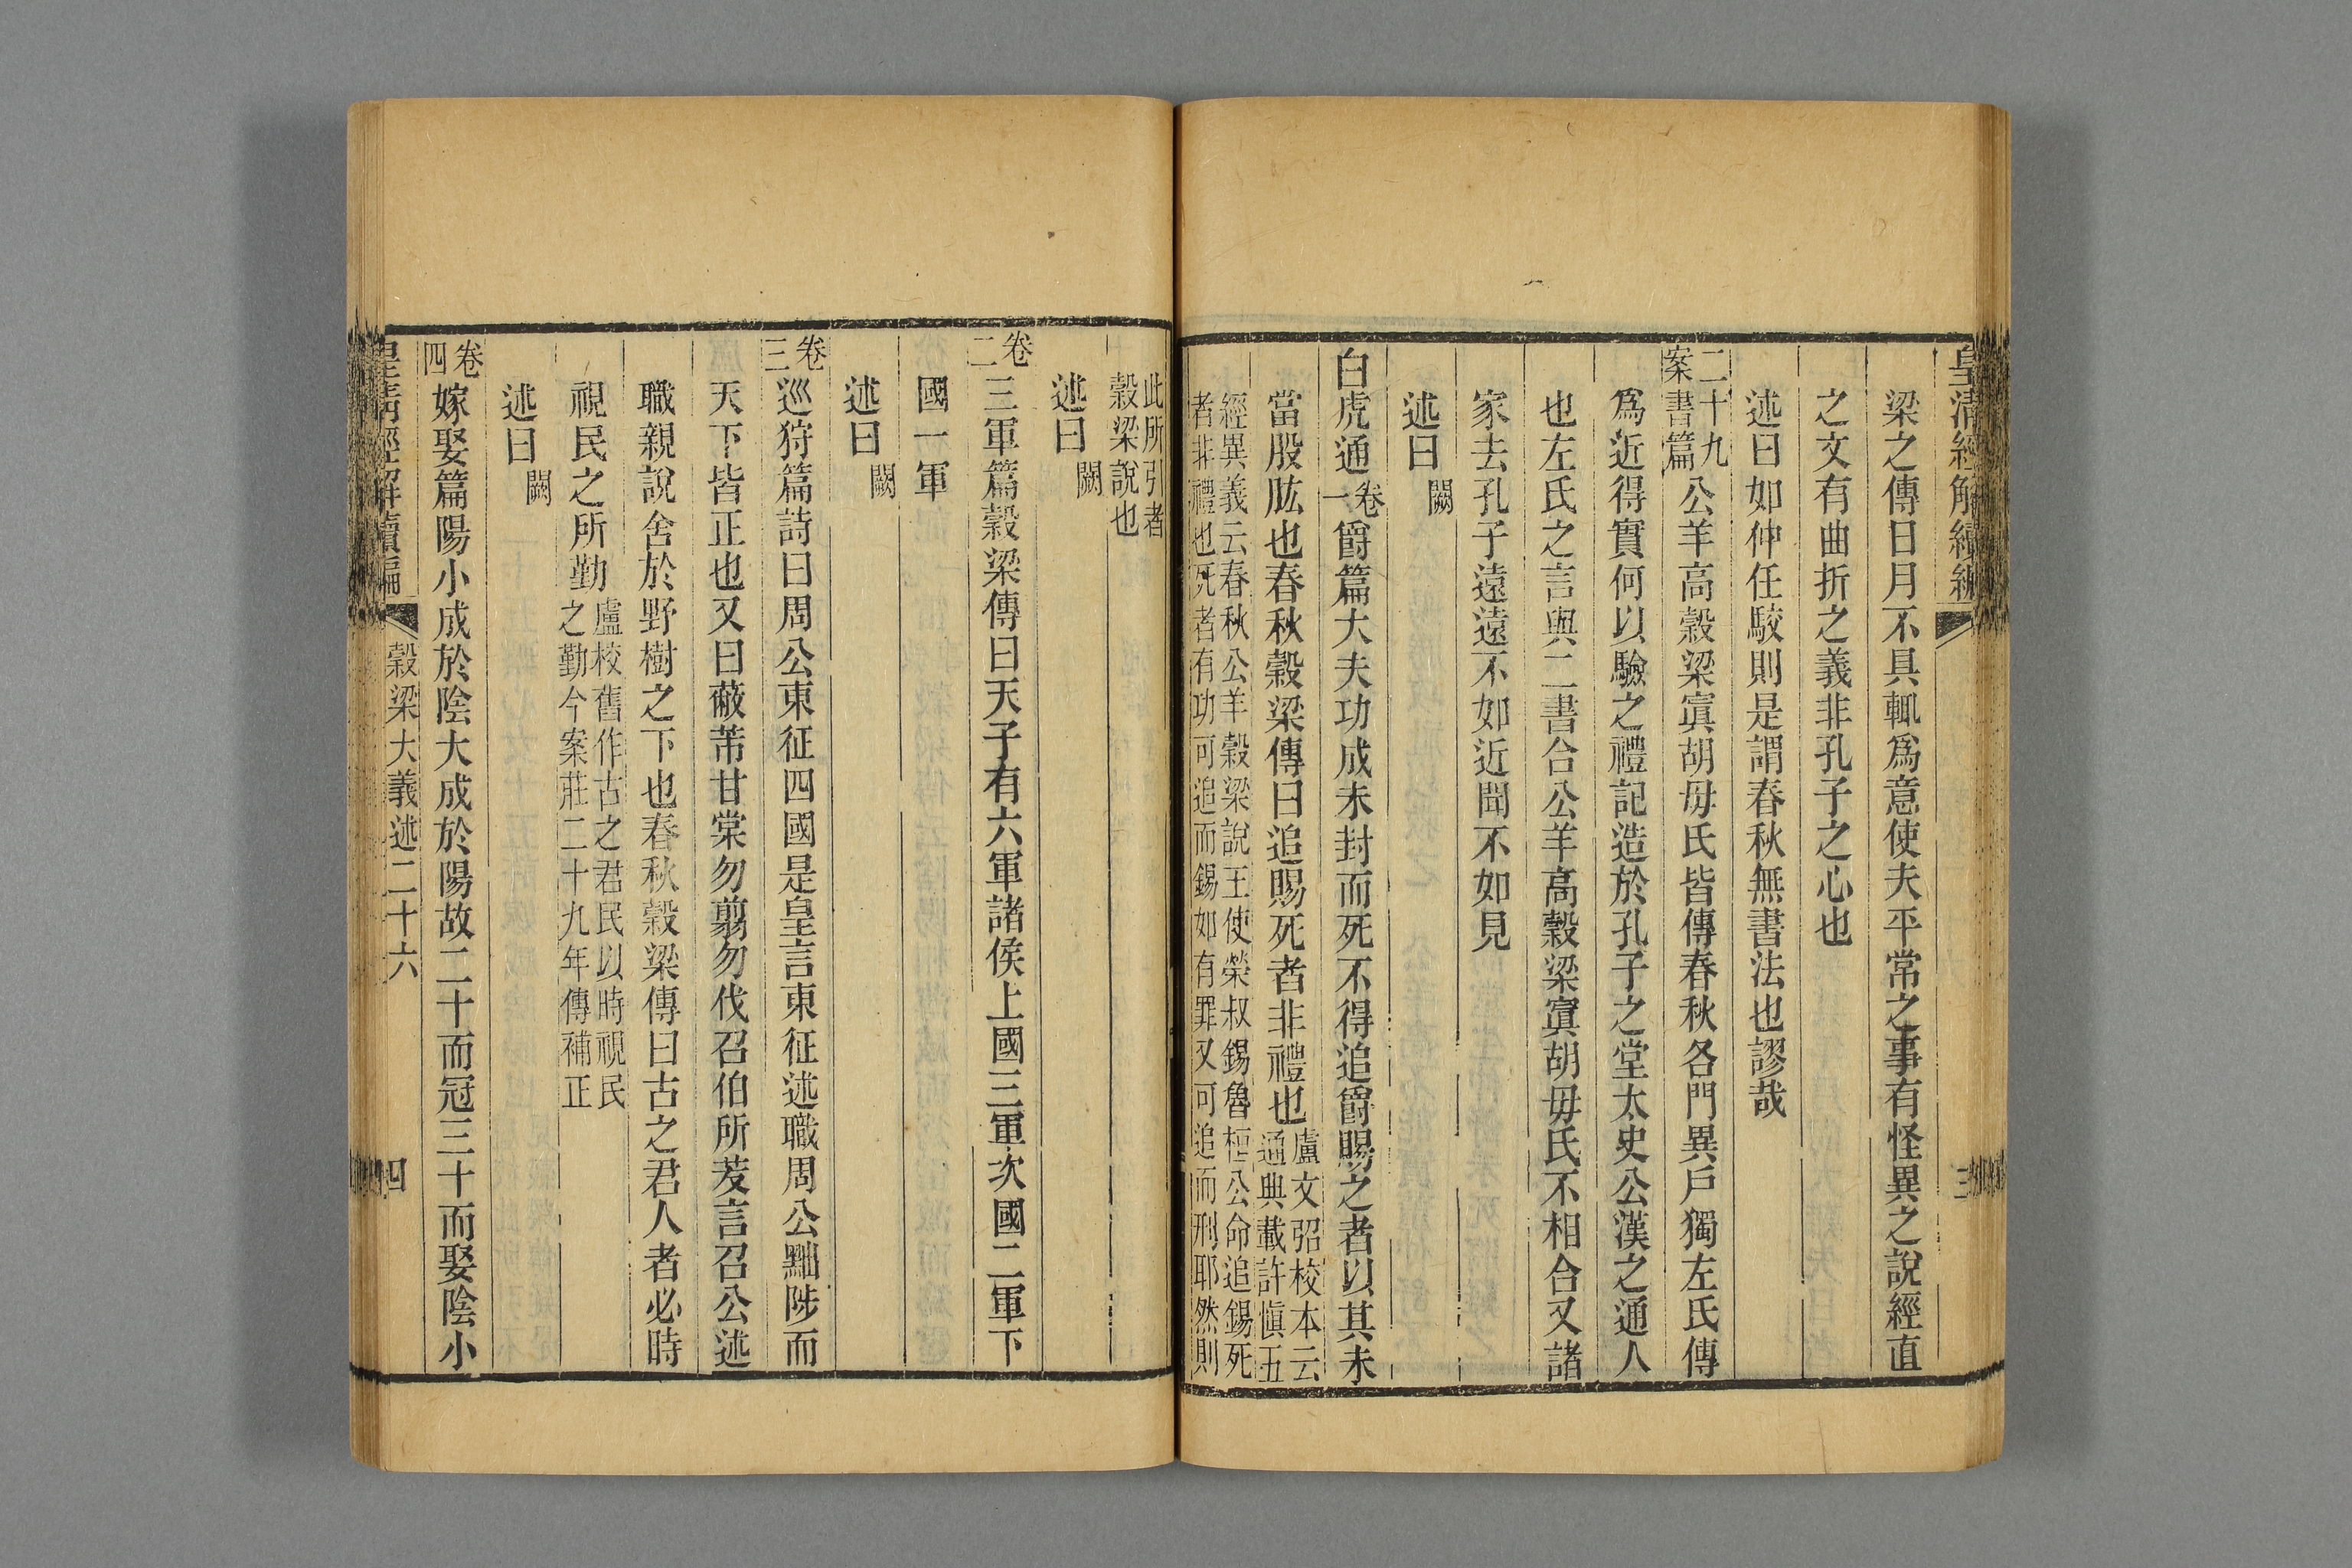 皇清經解續編
三
梁之傳日月不具輒爲意使夫平常之事有怪異之說經直
之文有曲折之義非孔子之心也
述曰如仲任駮則是謂春秋無書法也謬哉
二十九
案書篇公羊高穀梁寘胡毋氏皆傳春秋各門異戶獨左氏傳
爲近得實何以驗之禮記造於孔子之堂太史公漢之通人
也左氏之言與二書合公羊高穀梁寘胡毋氏不相合又諸
家去孔子遠遠不如近聞不如見
述曰闕
白虎通卷一爵篇大夫功成未封而死不得追爵賜之者以其未
當股肱也春秋穀梁傳曰追賜死者非禮也
盧文弨校本云
通典載許愼五
經異義云春秋公羊穀梁說王使榮叔錫魯桓公命追錫死
者非禮也死者有功可追而錫如有罪又可追而刑耶然則
此所引者
穀梁說也
述曰闕
卷二三軍篇穀梁傳曰天子有六軍諸侯上國三軍次國二軍下
國一軍
述曰闕
卷三巡狩篇詩曰周公東征四國是皇言東征述職周公黜陟而
天下皆正也又曰蔽芾甘棠勿翦勿伐召伯所茇言召公述
職親說舍於野樹之下也春秋穀梁傳曰古之君人者必時
視民之所勤
盧校舊作古之君民以時視民
之勤今案莊二十九年傳補正
述曰闕
卷四嫁娶篇陽小成於陰大成於陽故二十而冠三十而娶陰小
皇清經解續編
穀梁大義述二十六
四